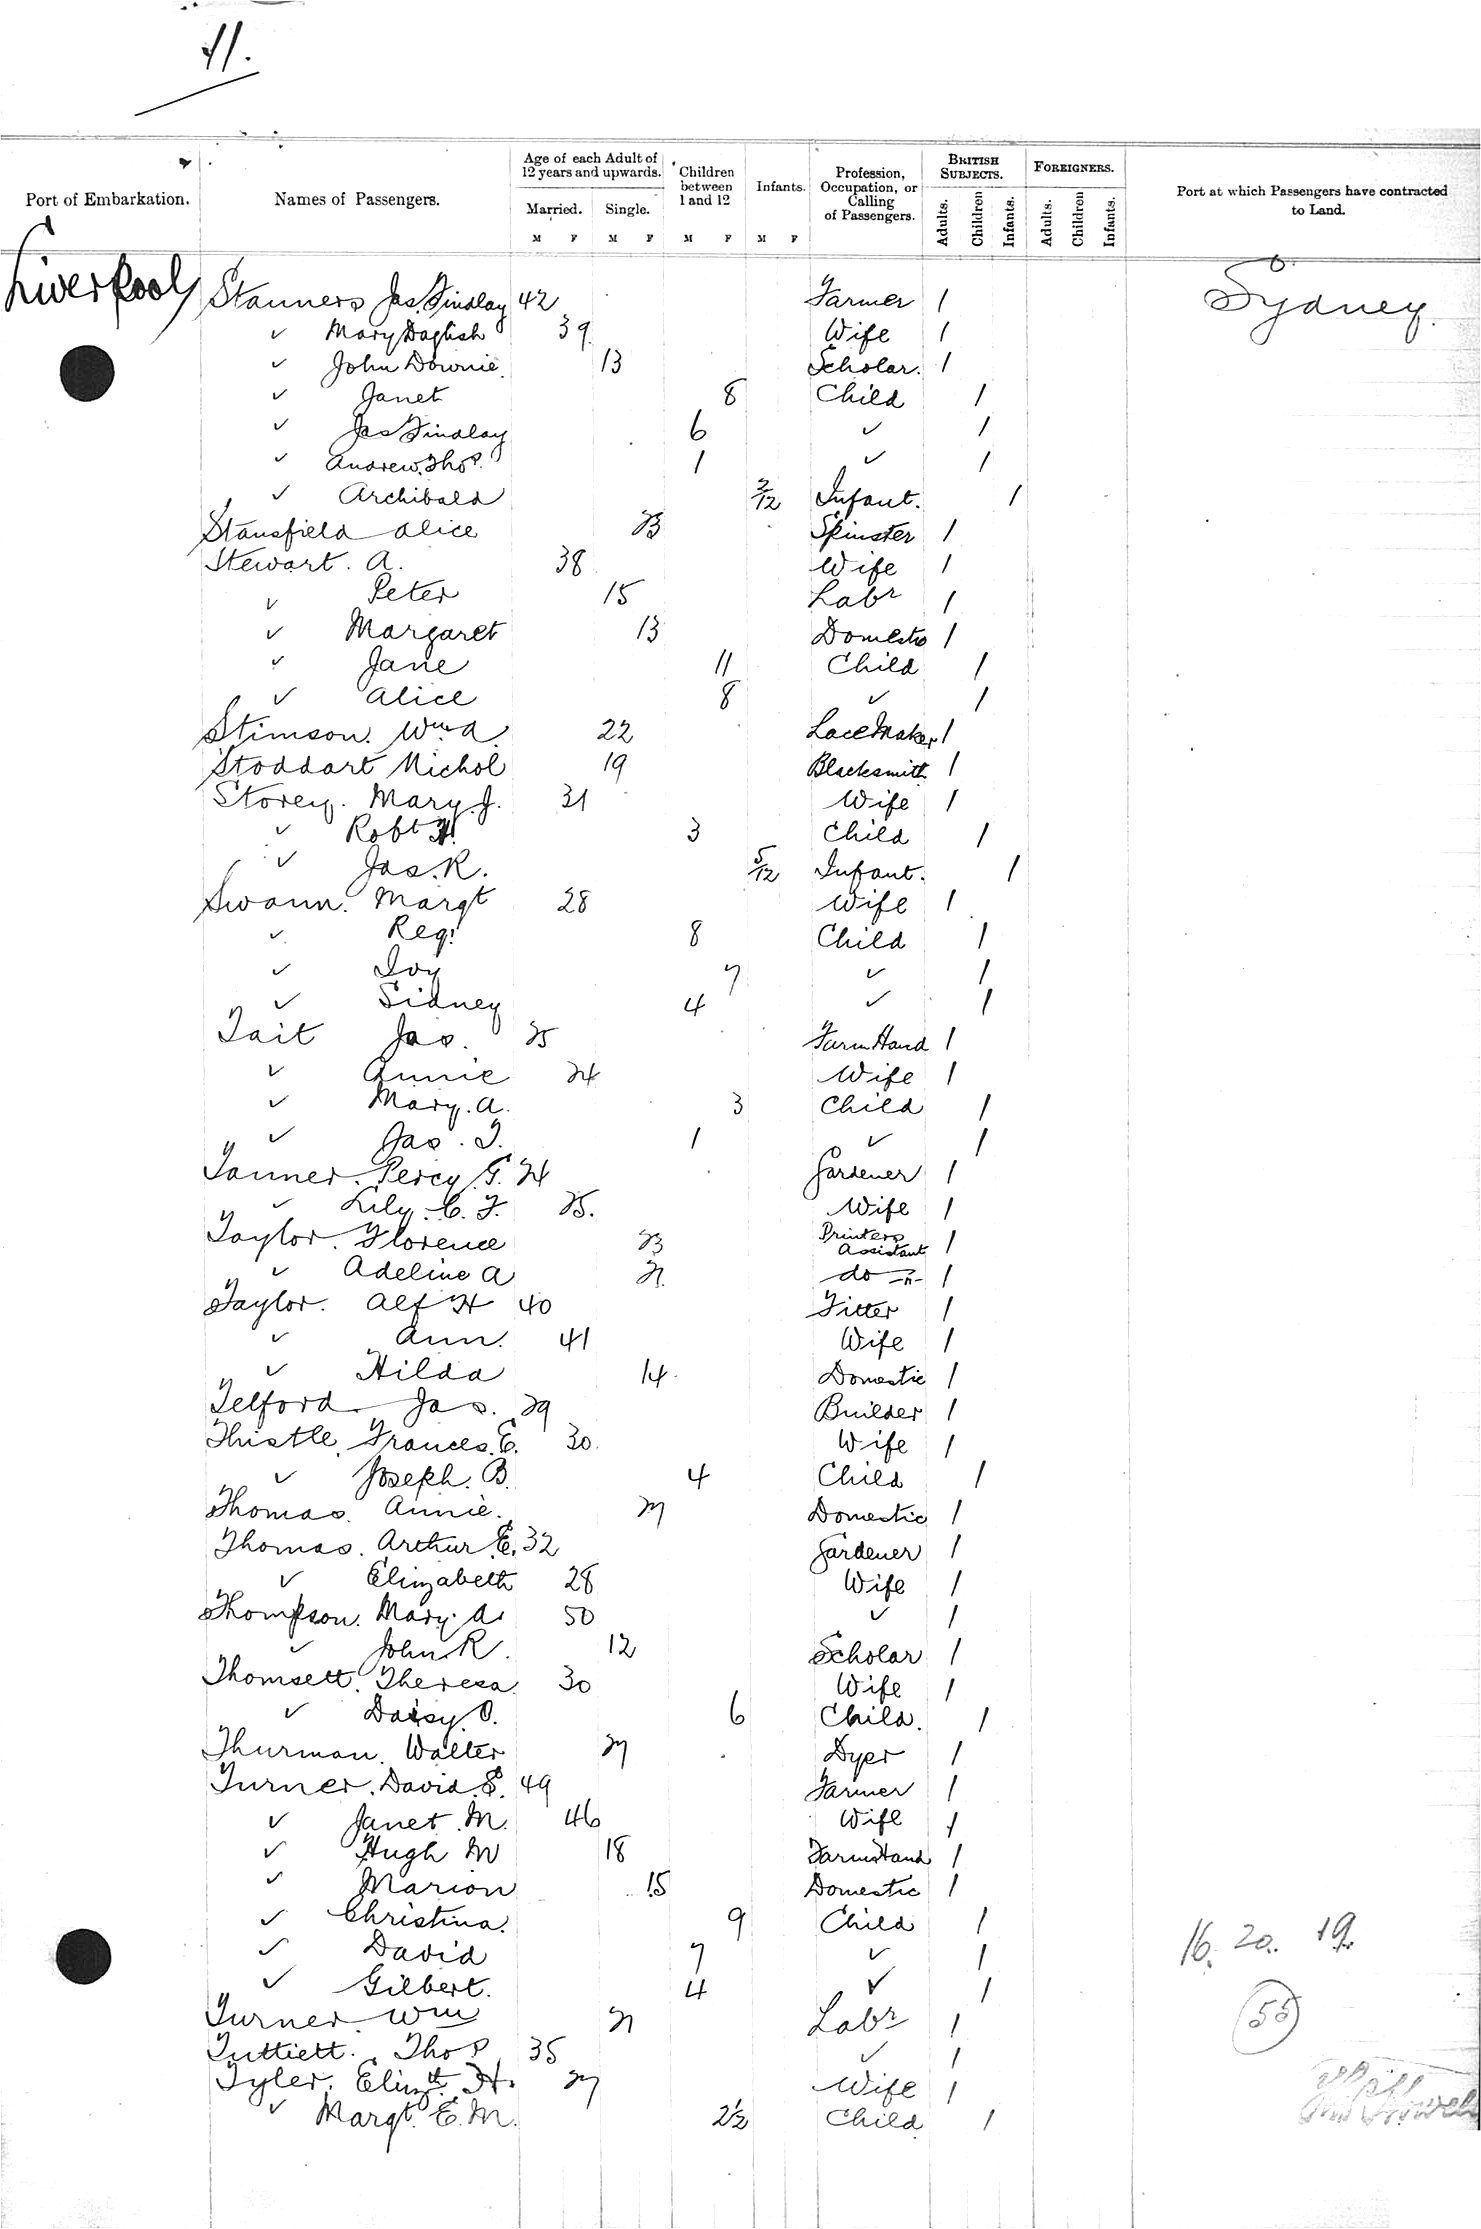 11.
Port of Embarkation. Names of Passengers. Age of each Adult of 12 years and upwards. Married. Single. M F M F Children between 1 and 12 M F Infants. M F Profession, Occupation, or Calling of Passengers. British Subjects. Adults. Children Infants. Foreigners. Adults. Children Infants. Port at which Passengers have contracted to Land.
Liverpool Stanners Jas. Findlay 42 Farmer 1 Sydney.
✓ Mary Daglish 39. Wife 1
✓ John Downie. 13 Scholar. 1
✓ Janet 8 Child 1
✓ Jas Findlay 6 ✓ 1
✓ Andrew. Thos. 1 ✓ 1
✓ Archibald 2/12 Infant. 1
Stansfield Alice 23 Spinster 1
Stewart. A. 38 Wife 1
✓ Peter 15 Labr 1
✓ Margaret 13 Domestic 1
✓ Jane 11 Child 1
✓ Alice 8 ✓ 1
Stimson. Wm A. 22 Lace Maker 1
Stoddart Nichol 19 Blacksmith 1
Storey. Mary. J. 31 Wife 1
✓ Robt H. 3 Child 1
✓ Jas. R. 5/12 Infant. 1
Swann. Margt 28 Wife 1
✓ Reg. 8 Child 1
✓ Ivy 7 ✓ 1
✓ Sidney 4 ✓ 1
Tait Jas. 25 Farm Hand 1
✓ Annie 24 Wife 1
✓ Mary. A. 3 Child 1
✓ Jas. T. 1 ✓ 1
Tanner. Percy. G. 24 Gardener 1
✓ Lily. C. F. 25. Wife 1
Taylor. Florence 23 Printers Assistant 1
✓ Adeline A 21. do -"- 1
Taylor. Alf H 40 Fitter 1
✓ Ann. 41 Wife 1
✓ Hilda 14. Domestic 1
Telford Jas. 29 Builder 1
Thistle. Frances. E. 30. Wife 1
✓ Joseph. B. 4 Child 1
Thomas. Annie. 27 Domestic 1
Thomas. Arthur. E. 32 Gardener 1
✓ Elizabeth 28 Wife 1
Thompson. Mary. A. 50 ✓ 1
✓ John. R. 12 Scholar 1
Thomsett. Theresa. 30 Wife 1
✓ Daisy. O. 6 Child. 1
Thurman. Walter 27 Dyer 1
Turner. David. S. 49 Farmer 1
✓ Janet. M. 46 Wife 1
✓ Hugh M 18 Farm Hand 1
✓ Marion 15 Domestic 1
✓ Christina. 9 Child 1 16. 20. 19.
✓ David 7 ✓ 1
✓ Gilbert. 4 ✓ 1
Turner. Wm 21 Labr 1 55
Tuttiett. Thos 35 ✓ 1
Tyler. Elizth H. 27 Wife 1
✓ Margt. E. M. 2½ Child 1